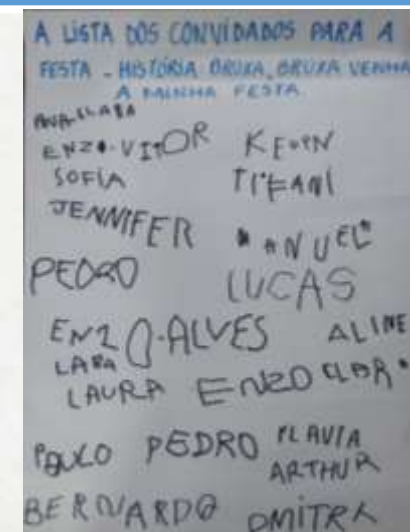 A LISTA DOS CONVIDADOS PARA A
FESTA - HISTÓRIA BRUXA, BRUXA VENHA
A MINHA FESTA
ANA CLARA
ENZO-VITOR KEVIN
SOFIA TIFANI
JENNIFER MANUEL
PEDRO LUCAS
ENZO-ALVES ALINE
LARA
LAURA ENZO
PAULO PEDRO FLAVIA
ARTHUR
BERNARDO